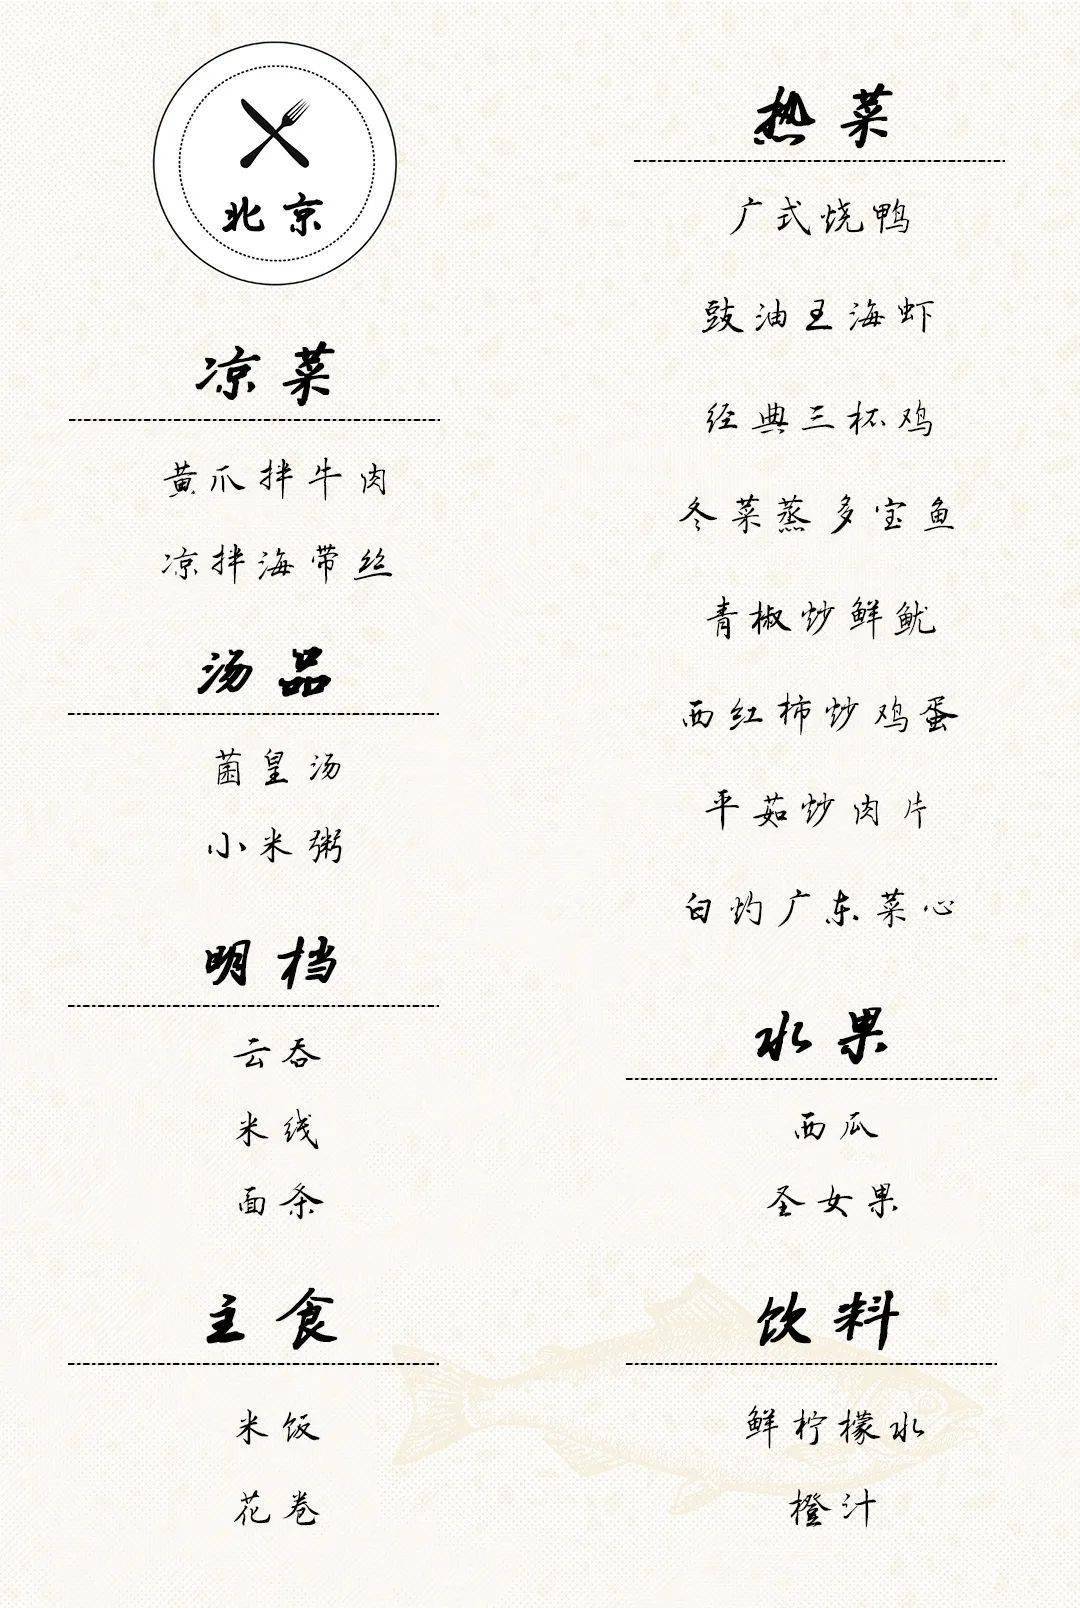 北京
凉菜
黄爪拌牛肉
凉拌海带丝
汤品
菌皇汤
小米粥
明档
云吞
米线
面条
主食
米饭
花卷
热菜
广式烧鸭
豉油王海虾
经典三杯鸡
冬菜蒸多宝鱼
青椒炒鲜鱿
西红柿炒鸡蛋
平茹炒肉片
白灼广东菜心
水果
西瓜
圣女果
饮料
鲜柠檬水
橙汁